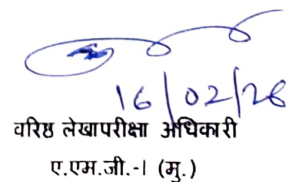 16/02/26
वरिष्ठ लेखापरीक्षा अधिकारी
ए.एम.जी.-I (मु.)